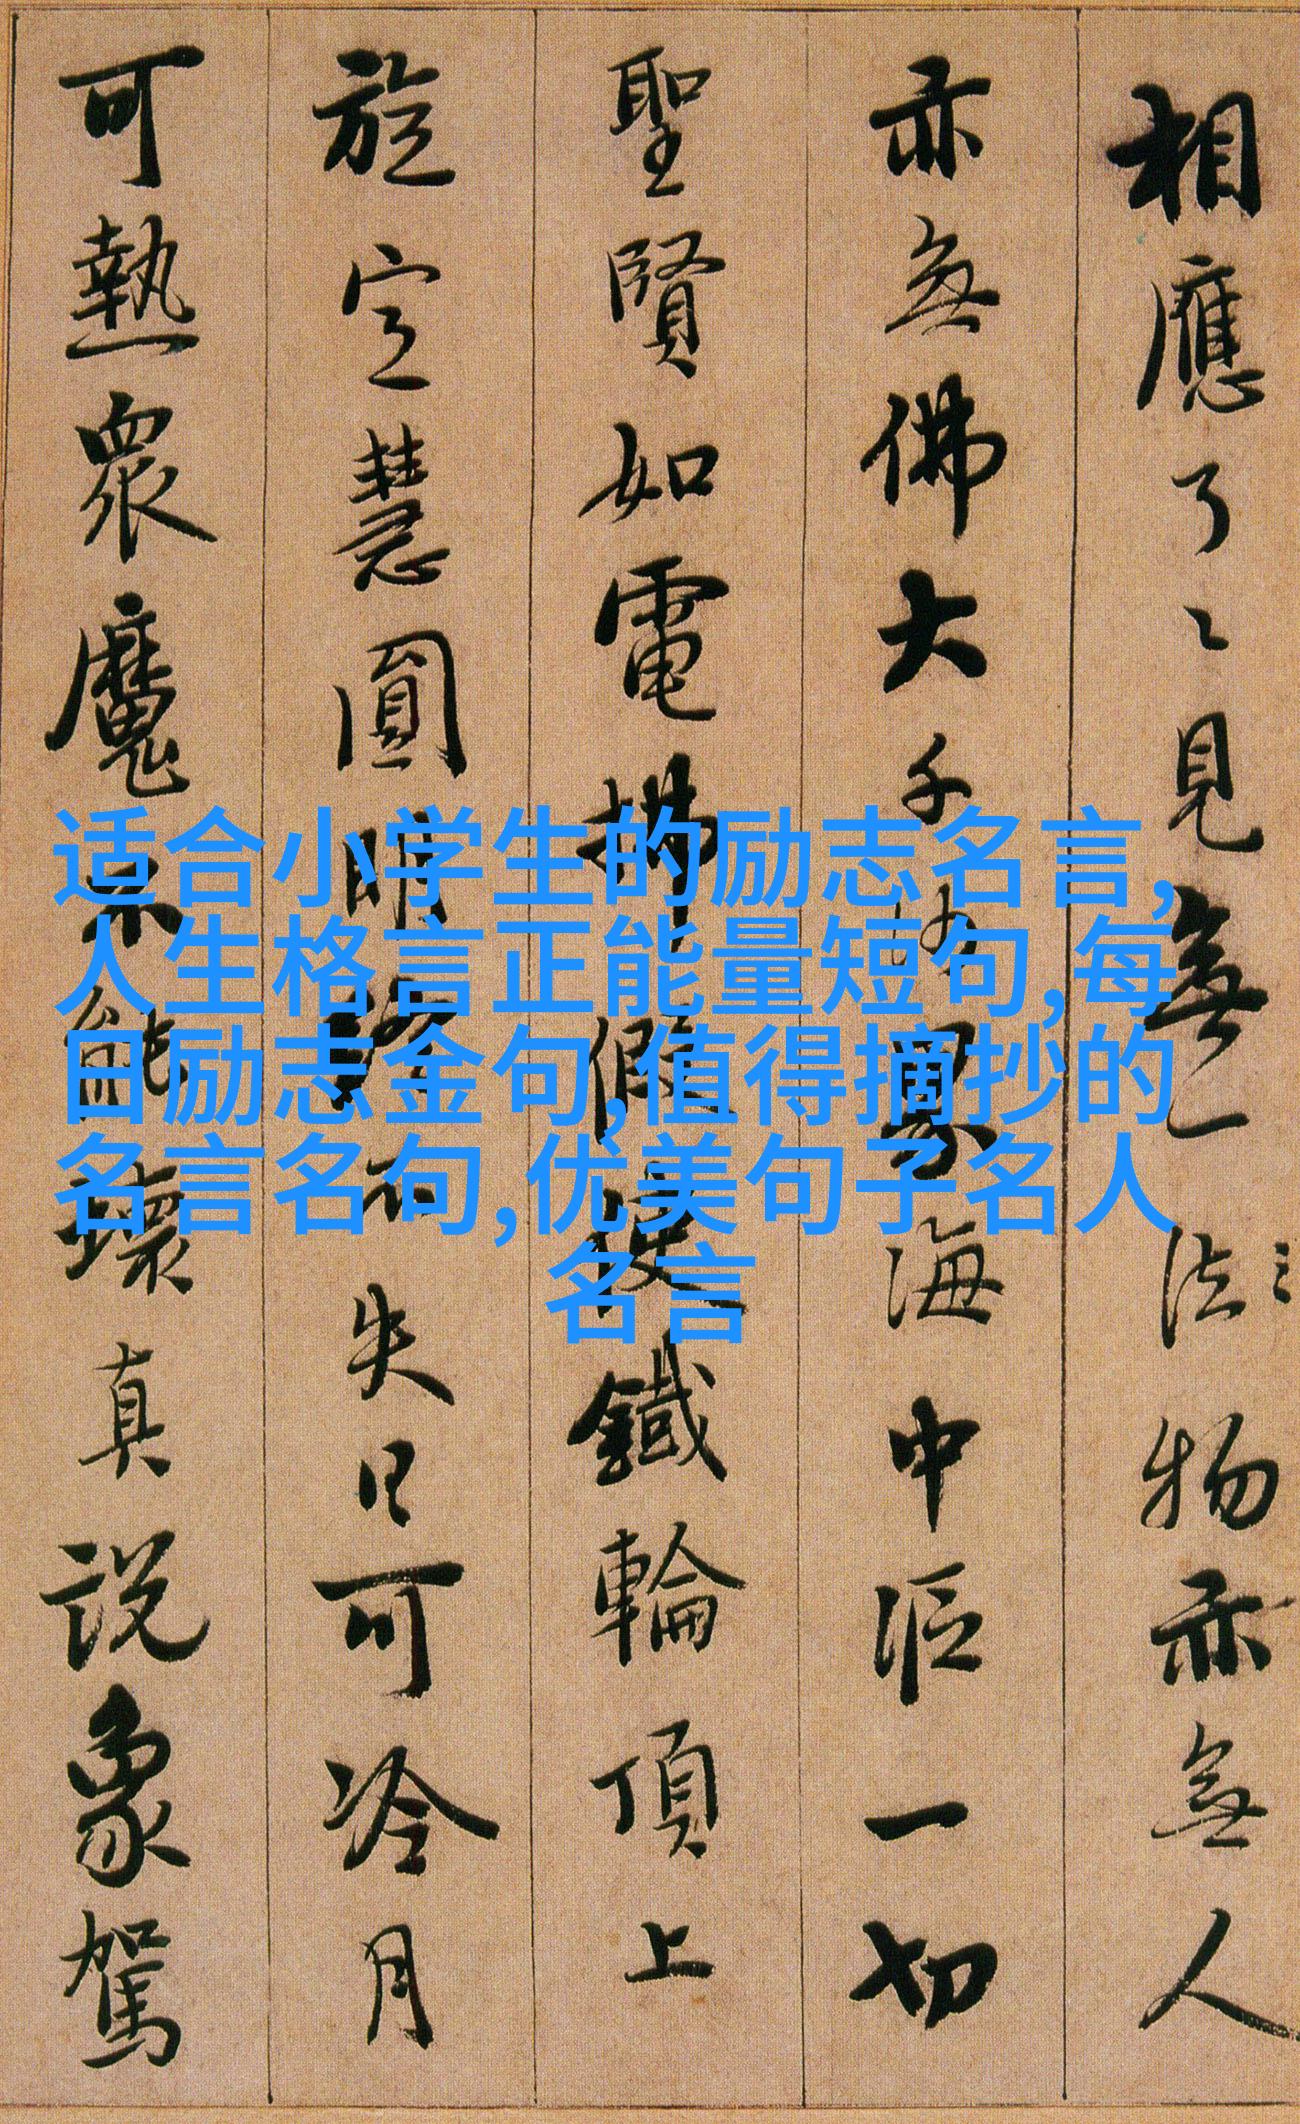 相應了〻見無一法物亦無人
亦無佛大千沙界海中漚一切
聖賢如電拂假使鐵輪頂上
旋定慧圓明終不失日可冷月
可熱眾魔不能壞真説象駕
适合小学生的励志名言,
人生格言正能量短句,每
日励志金句,值得摘抄的
名言名句,优美句子名人
名言